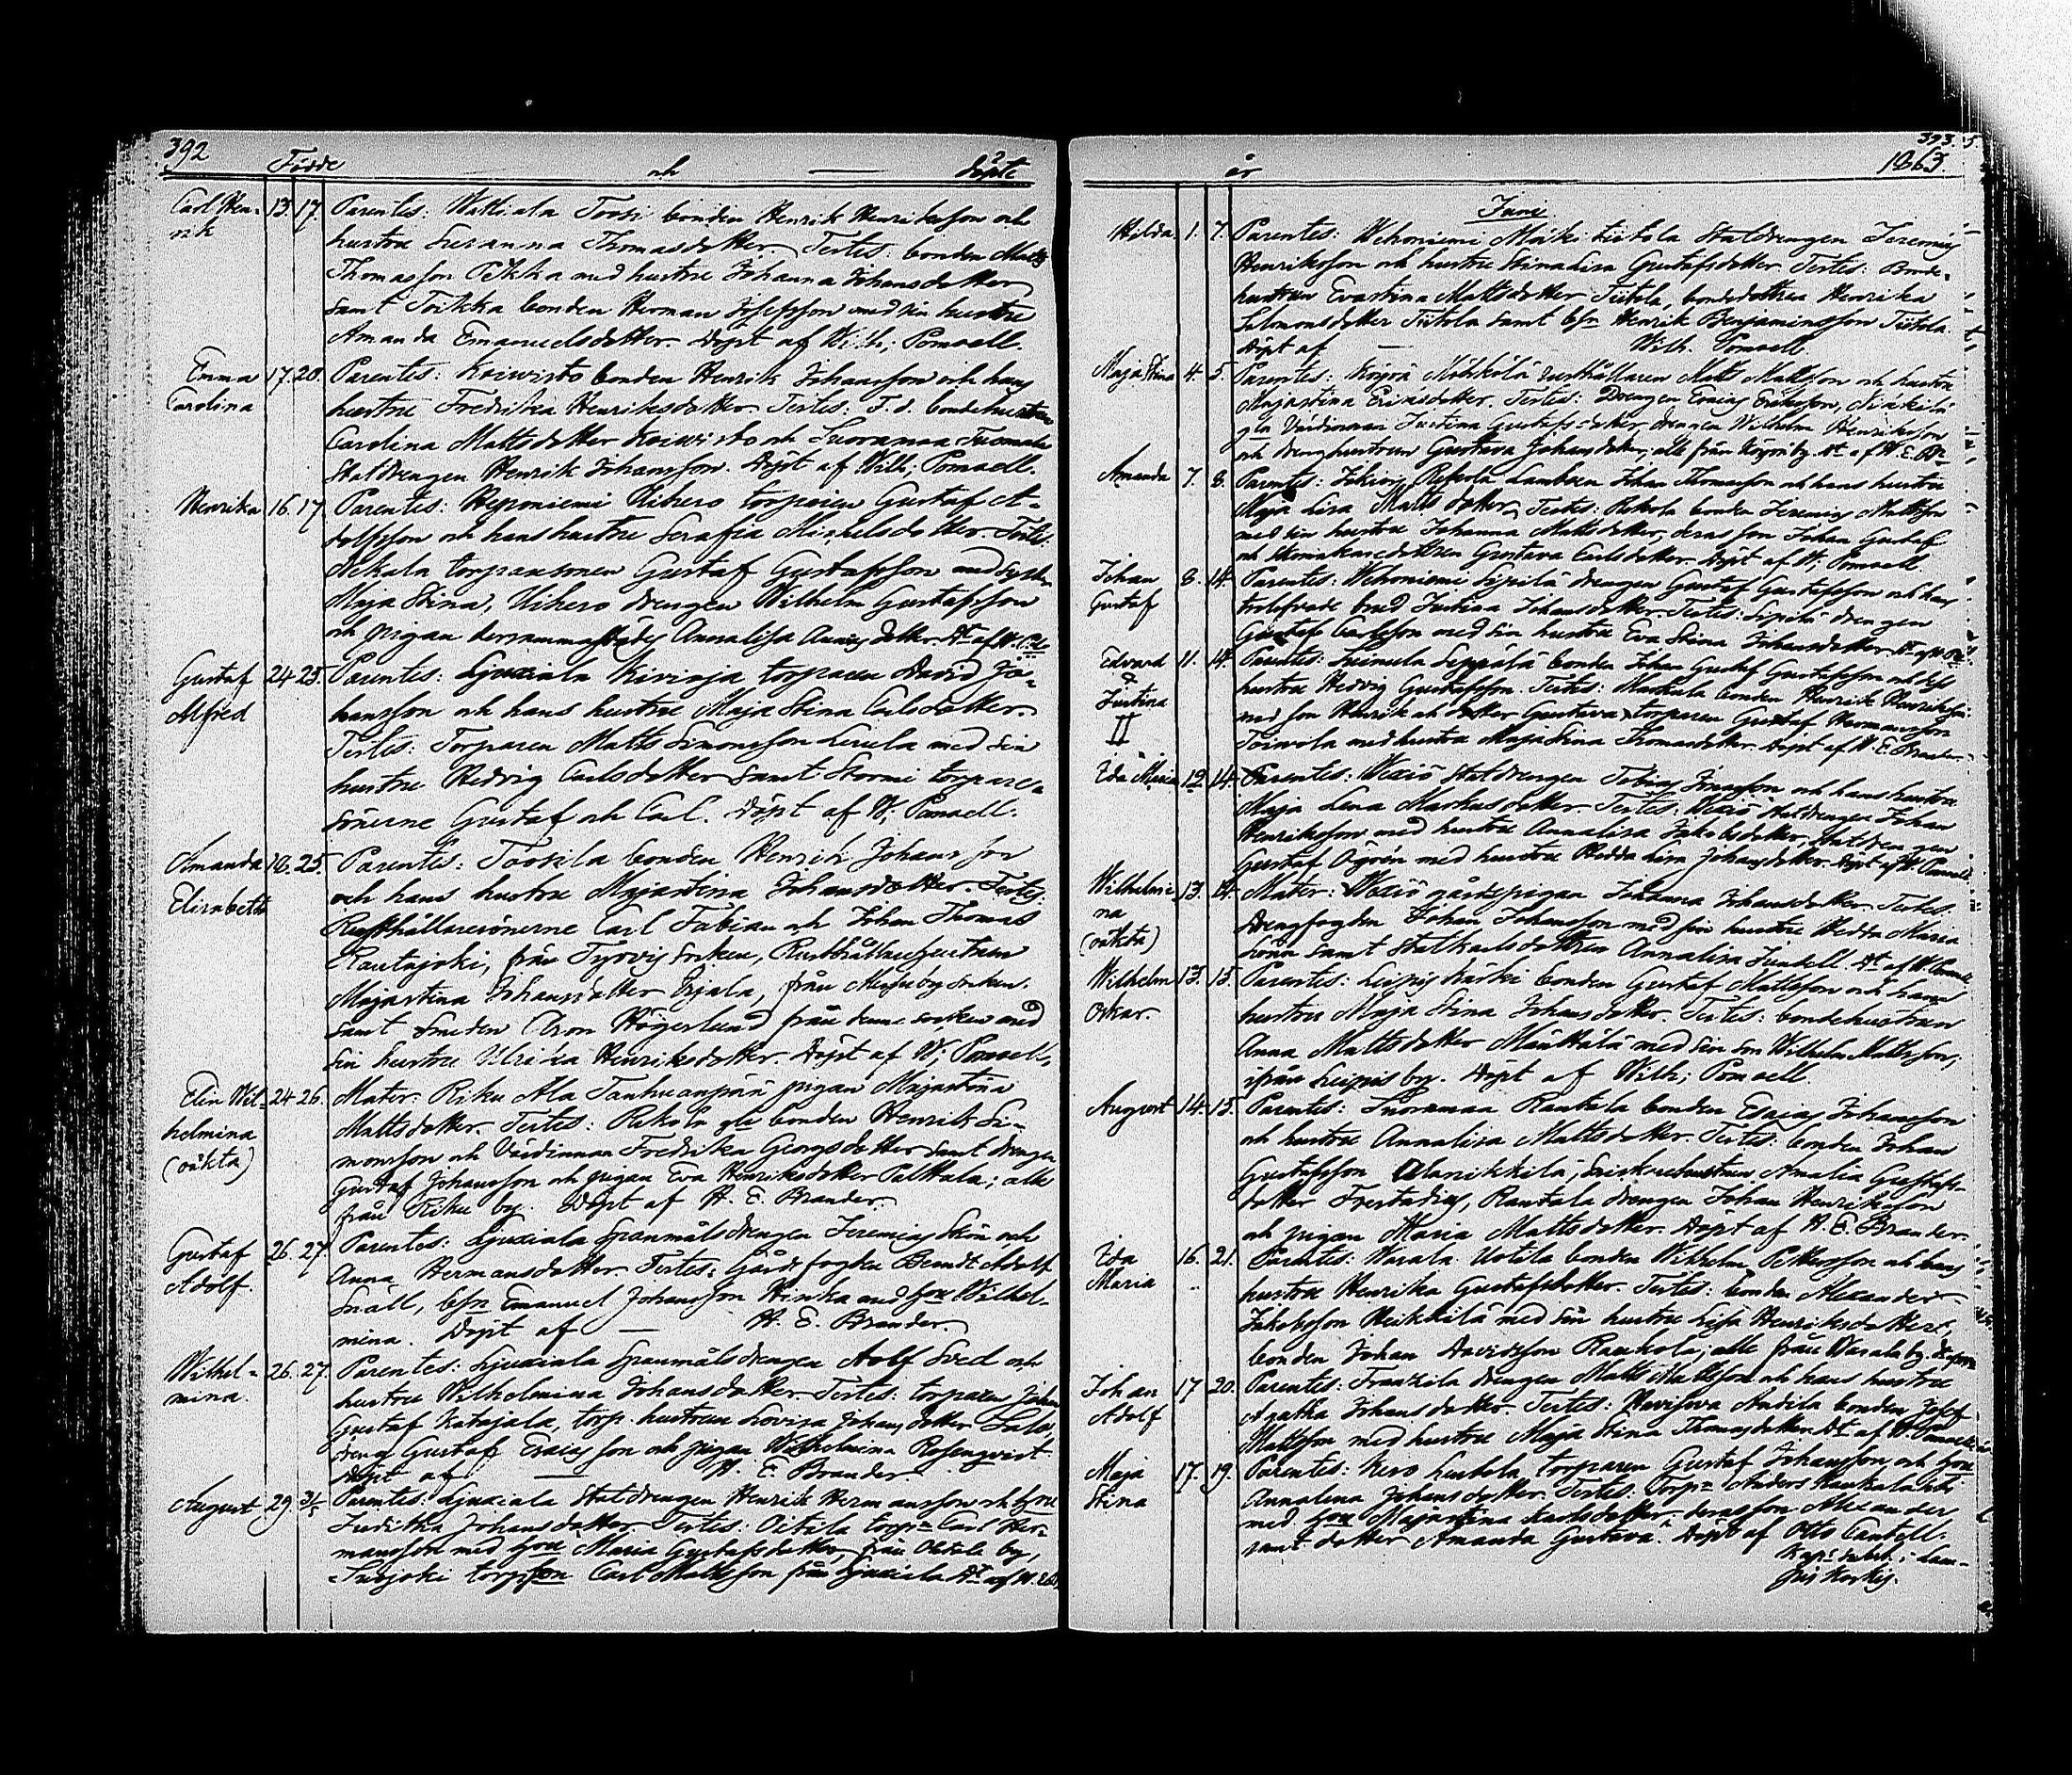 392
Födde och döpte
Carl Hen- 13. 17. Parentes: Wattiala Toosi bonden Henrik Henriksson och
rik hustru Susanna Thomasdotter. Testes: bonden Matts
Thomasson Pekka med hustru Johanna Johansdotter
samt Toikka bonden Herman Josefsson med sin hustru
Amanda Emanuelsdotter. Döpt af Wilh; Pomoell.
Emma 17. 20. Parentes: Koivisto bonden Henrik Johansson och hans
Carolina hustru Fredrika Henriksdotter. Testes: F. d. bondehustrun
Carolina Mattsdotter Koivisto och Suoramaa Tuomala
Staldrengen Henrik Johansson. Döpt af Wilh; Pomoell.
Henrika 16. 17. Parentes: Heponiemi Uihero torparen Gustaf A-
dolfsson och hans hustru Serafia Michelsdotter. Testes:
torparesonen Gustaf Gustafsson med syster
Maja Stina, Uihero drengen Wilhelm Gustafsson
och pigan dersammastädes Annalisa dotter. Dt af
Gustaf 24. 25. Parentes: Ljuxiala Kivioja torparen David Jo-
Alfred hansson och hans hustru Maja Stina Carlsdotter.
Testes: Torparen Matts Simonsson med sin
hustru Hedvig Carlsdotter samt Stormi torpare-
sönerne Gustaf och Carl. Döpt af W; Pomoell.
Amanda 25. Parentes: Tooxila bonden Henrik Johansson
Elisabeth och hans hustru Majastina Johansdotter. Testes:
Rusthållaresönerne Carl Fabian och Johan Thomas
Rautajoki, från Tyrvis socken, Rusthållarehustrun
Majastina Johansdotter från Messuby socken.
samt Smeden Aron Högerlund från denne socken med
sin hustru Ulrika Henriksdotter. Döpt af W; Pomoell.
Elin Wil- 24. 26. Mater: Riku Ala Tanhuanpää pigan Majastina
helmina Mattsdotter. Testes: Rikola gla bonden Henrik Si-
(oäkta) monsson och Värdinnan Fredrika Georgsdotter samt drengen
Gustaf Johansson och pigan Eva Henriksdotter Palttala; alle
från Riku by. Döpt af H. E. Brander.
Gustaf 26. 27. Parentes: Ljuxiala Spanmålsdrengen Jeremias och
Adolf. Anna Hermansdotter. Testes: Gårdsfogden Berndt Adolf
Snäll, bsn Emanuel Johansson med hon Wilhel-
mina. Döpt af — H. E. Brander.
Wilhel- 26. 27. Parentes: Ljuxiala Spanmålsdrengen Adolf Sved och
mina. hustru Wilhelmina Johansdotter. Testes: torparen Johan
Gustaf Katajala, torp. hustrun Lovisa Johansdotter Salo,
dreng Gustaf Esaiasson och pigan Wilhelmina Rosenqvist.
Döpt af — H. E. Brander.
August. 29. 31. Parentes: Ljuxiala Staldrengen Henrik Hermansson och hon
Juditha Johansdotter. Testes: Oitila torpn Carl Her-
mansson med hon Maria Gustafsdotter, från by,
torpson Carl Mattsson från Ljuxiala. Dt af
393.
år 1863.
Juni
Hilda. 1. 7. Parentes: Wehoniemi Mäki Tiitola Staldrengen Jeremias
Henriksson och hustru Stina Lisa Gustafsdotter. Testes: Bonde-
hustrun Evastina Mattsdotter Tiitola, bondedottren Henrika
Salomonsdotter Tiitola samt bsn Henrik Benjaminsson Tiitola.
Döpt af — Wilh. Pomoell
Maja Stina 4. 5. Parentes: rusthållaren Matts Mattsson och hustru
Majastina Eriksdotter. Testes: Drengen Eriksson,
gla Värdinnan Justina Gustafsdotter, drengen Wilhelm Henriksson
och drenghustrun Gustava Johansdotter, alle från by. Dt af H. E. Br
Amanda 7. 8. Parentes: Johan Thomasson och hans hustru
Maja Lisa Mattsdotter. Testes: bonden Jeremias Mattsson
med sin hustru Johanna Mattsdotter, deras son Johan Gustaf
och Gustava Carlsdotter. Döpt af W; Pomoell
Johan 8. 14. Parentes: Wehoniemi Sipilä drengen Gustaf Gustafsson och hans
Gustaf trolofvade brud Justina Johansdotter. Testes: Sipilä drengen
Gustaf Carlsson med sin hustru Eva Stina Johansdotter.
Edvard 11. 14. Parentes: Seppälä bonden Johan Gustaf Gustafsson och dess
& hustru Hedvig Gustafsson. Testes: bonden Henrik Henriksson
Justina med son Henrik och dotter Gustava, torparen Gustaf Hermansson
II Toivola med hustru Maja Stina Thomasdotter. Döpt af H. E. Brander.
Ida Maria 12. 14. Parentes: Wexiö Staldrengen Tobias Jonasson och hans hustru
Maja Lena Markusdotter. Testes: Wexiö Staldrengen Johan
Henriksson med hustru Annalisa Jakobsdotter, Staldrengen
Gustaf Ögrön med hustru Hedda Lisa Johansdotter. Döpt af W. Pomoell.
Wilhelmi- 13. 14. Mater: Wexiö gårdspigan Johanna Johansdotter. Testes:
na Drengfogden Johan Johansson med sin hustru Hedda Maria
(oäkta) Lönn samt Statkarlsdottren Annalisa Dt af W. Pomoell
Wilhelm 13. 15. Parentes: Leipis bonden Gustaf Mattsson och hans
Oskar. hustru Maja Stina Johansdotter. Testes: bondehustrun
Anna Mattsdotter Mänttälä med sin son Wilhelm Mattsson,
ifrån Leipis by. Döpt af Wilh; Pomoell.
August 14. 15. Parentes: Suoramaa Rautala bonden Esaias Johansson
och hustru Annalisa Mattsdotter. Testes: bonden Johan
Gustafsson Alanikkilä, Amalia Gustafs-
dotter Frestadius, Rautala drengen Johan Henriksson
och pigan Maria Mattsdotter. Döpt af H. E. Brander.
Ida 16. 21. Parentes: Warala Uotila bonden Wilhelm Pettersson och hans
Maria hustru Henrika Gustafsdotter. Testes: bonden Alexander
Jakobsson Heikkilä med sin hustru Lisa Henriksdotter,
bonden Johan Davidsson Raukola, alle från Warala by.
Johan 17. 20. Parentes: Franzila drengen Matts Mattsson och hans hustru
Adolf Agatha Johansdotter. Testes: Havisova Andila bonden Josef
Mattsson med hustru Maja Stina Thomasdotter. Dt af W. Pomoell
Maja 17. 19. Parentes: torparen Gustaf Johansson och hon
Stina Annalena Johansdotter. Testes: Torpn Anders
med hon Majastina Karlsdotter, deras son Alexander
samt dotter Amanda Gustava. Döpt af Otto Cantell.